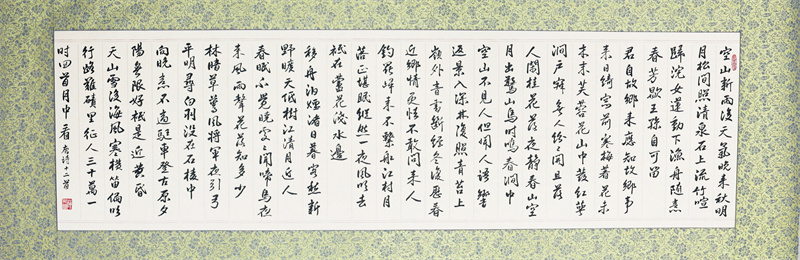 空山新雨後天氣晚來秋明
月松間照清泉石上流竹喧
歸浣女蓮動下漁舟隨意
春芳歇王孫自可留
君自故鄉來應知故鄉事
來日綺窗前寒梅著花未
木末芙蓉花山中發紅萼
澗戶寂無人紛紛開且落
人閒桂花落夜静春山空
月出驚山鳥時鳴春澗中
空山不見人但聞人語響
返景入深林復照青苔上
嶺外音書斷經冬復歷春
近鄉情更怯不敢問來人
釣罷歸來不繫船江村月
落正堪眠縱然一夜風吹去
衹在蘆花淺水邊
移舟泊煙渚日暮客愁新
野曠天低樹江清月近人
春眠不覺曉處處聞啼鳥夜
來風雨聲花落知多少
林暗草驚風將軍夜引弓
平明尋白羽没在石棱中
向晚意不適驅車登古原夕
陽無限好衹是近黄昏
天山雪後海風寒橫笛偏吹
行路難磧裏征人三十萬一
时回首月中看 唐诗十二首